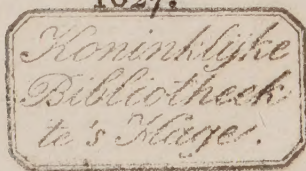 1627.
Koninklijke
Bibliotheek
te's Hage.